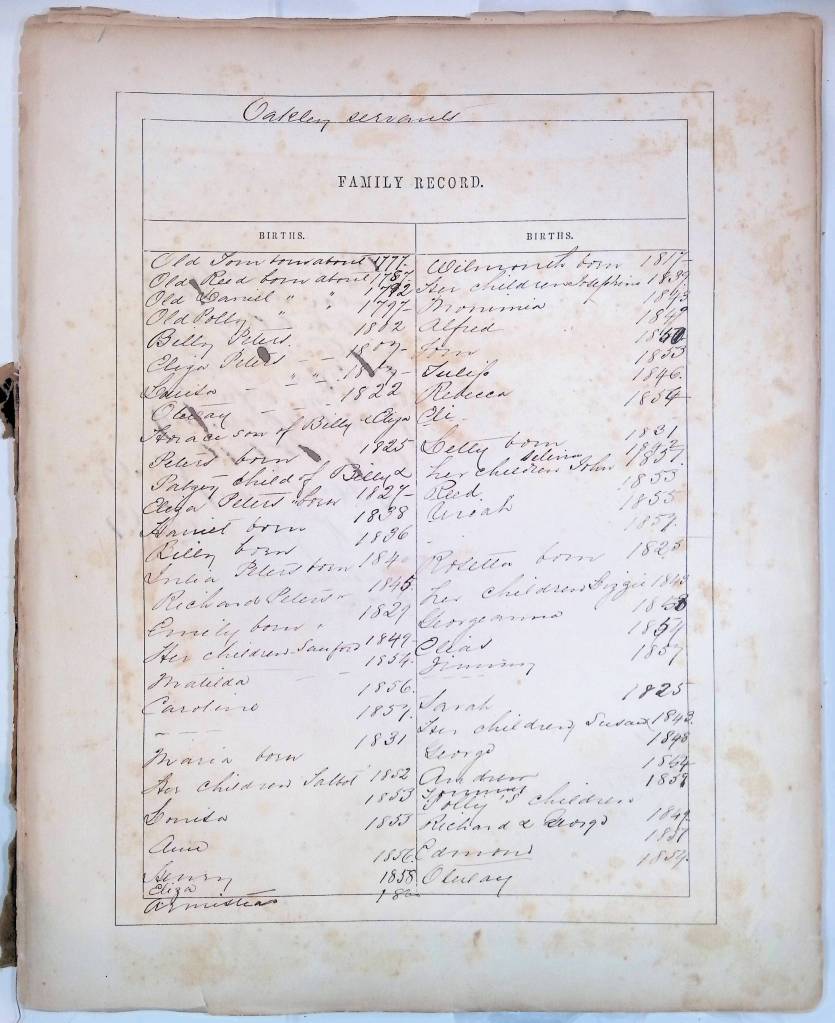 Oakley servants
FAMILY RECORD.
BIRTHS.
Old Tom born about 1777-
Old Reed born about 1787
Old Daniel " " 1792
Old Polly - " 1797-
Billy Peters. 1802
Eliza Peters - - 1807-
Louisa - " "
Otway - - - 1822
Horace son of Billy & Eliza
Peters born 1825
Patsey child of Billy &
Eliza Peters born 1827-
Daniel born 1838
Billy born 1836
Julia Peters born 184
Richard Peters " 1845
Emily born " 1829
Her children Sanford 1849-
Matilda - - 1854-
Caroline 1856.
- - - 1857.
Maria born 1831
Her children Talbot 1852
Louisa 1853
Ann 1855
Henry 1856
Eliza 1858
Armistead
BIRTHS.
Wilmonth born 1817-
Her children Josephine 1839
Monimia 1843
Alfred 1847
Tom 1850
Julip 1853
Rebecca 1846.
Eli - 1854
Letty born 1831
Selina
her children John
Reed. 1853
Uriah 1855
1857.
Rosetta born 1825
her children Lizzie 1843
Georgeanna
Elias 1854
Jimmy 1857
Sarah 1825
Her children Susan 1843.
George 1848
Andrew
Tommy
Polly's children
Richard & George 1849
Edmond 1857
Otway